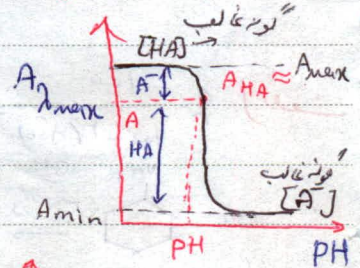 گونه غالب
[HA] →
A_HA ≈ A_max
A⁻
A_λmax
A
HA
گونه غالب
[A⁻]
A_min
PH
PH